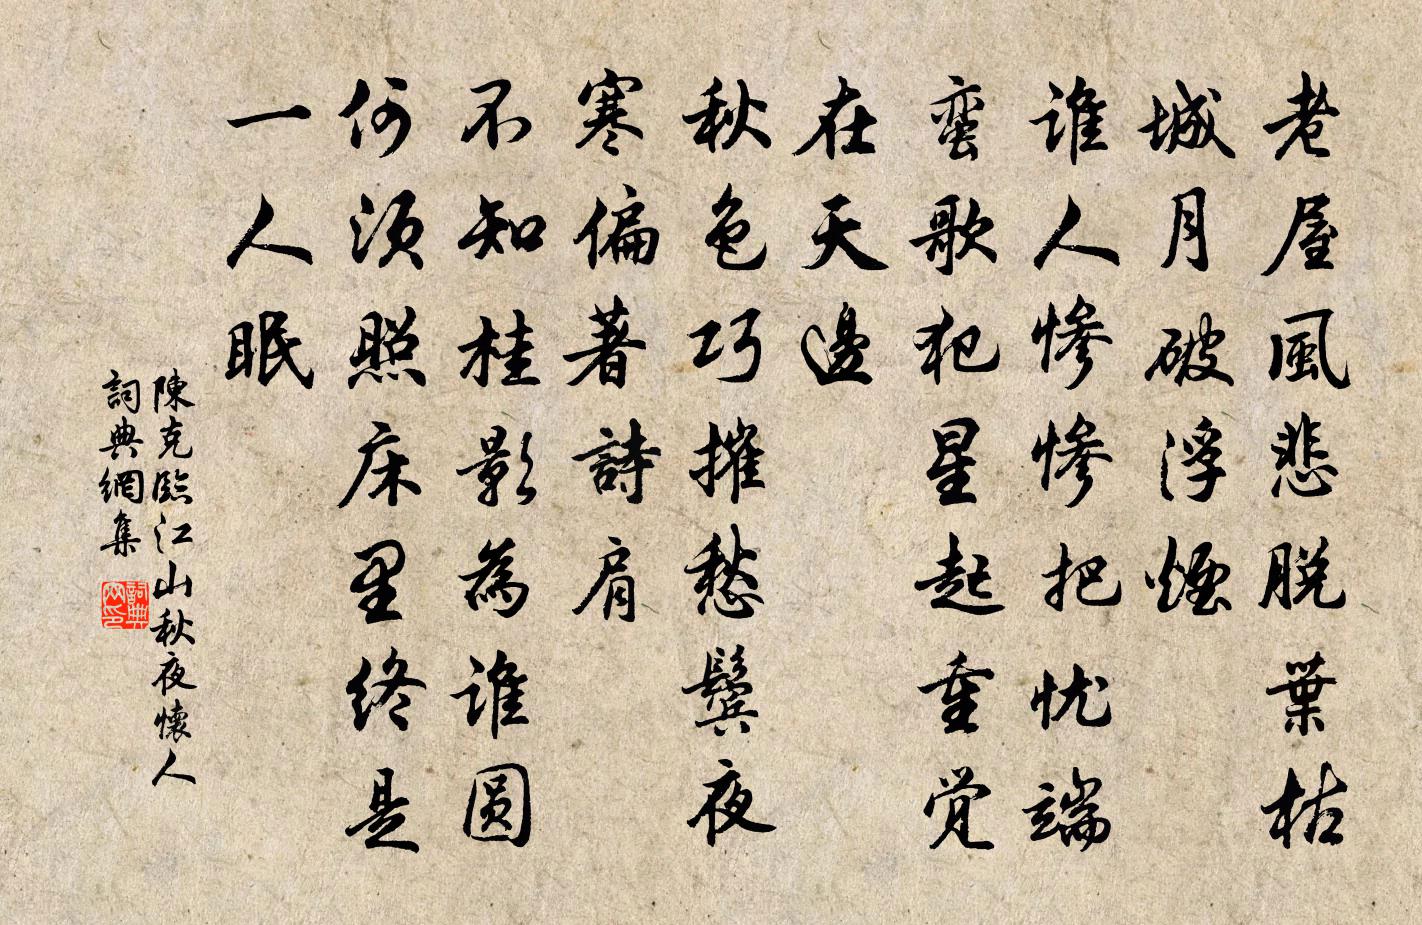 老屋風悲脱葉枯
城月破浮煙
誰人慘慘把忧端
蛮歌犯星起重觉
在天邊
秋色巧摧愁鬓夜
寒偏著詩肩
不知桂影為誰圆
何须照床里终是
一人眠
陳克臨江山秋夜懷人
詞典網集
詞典网印